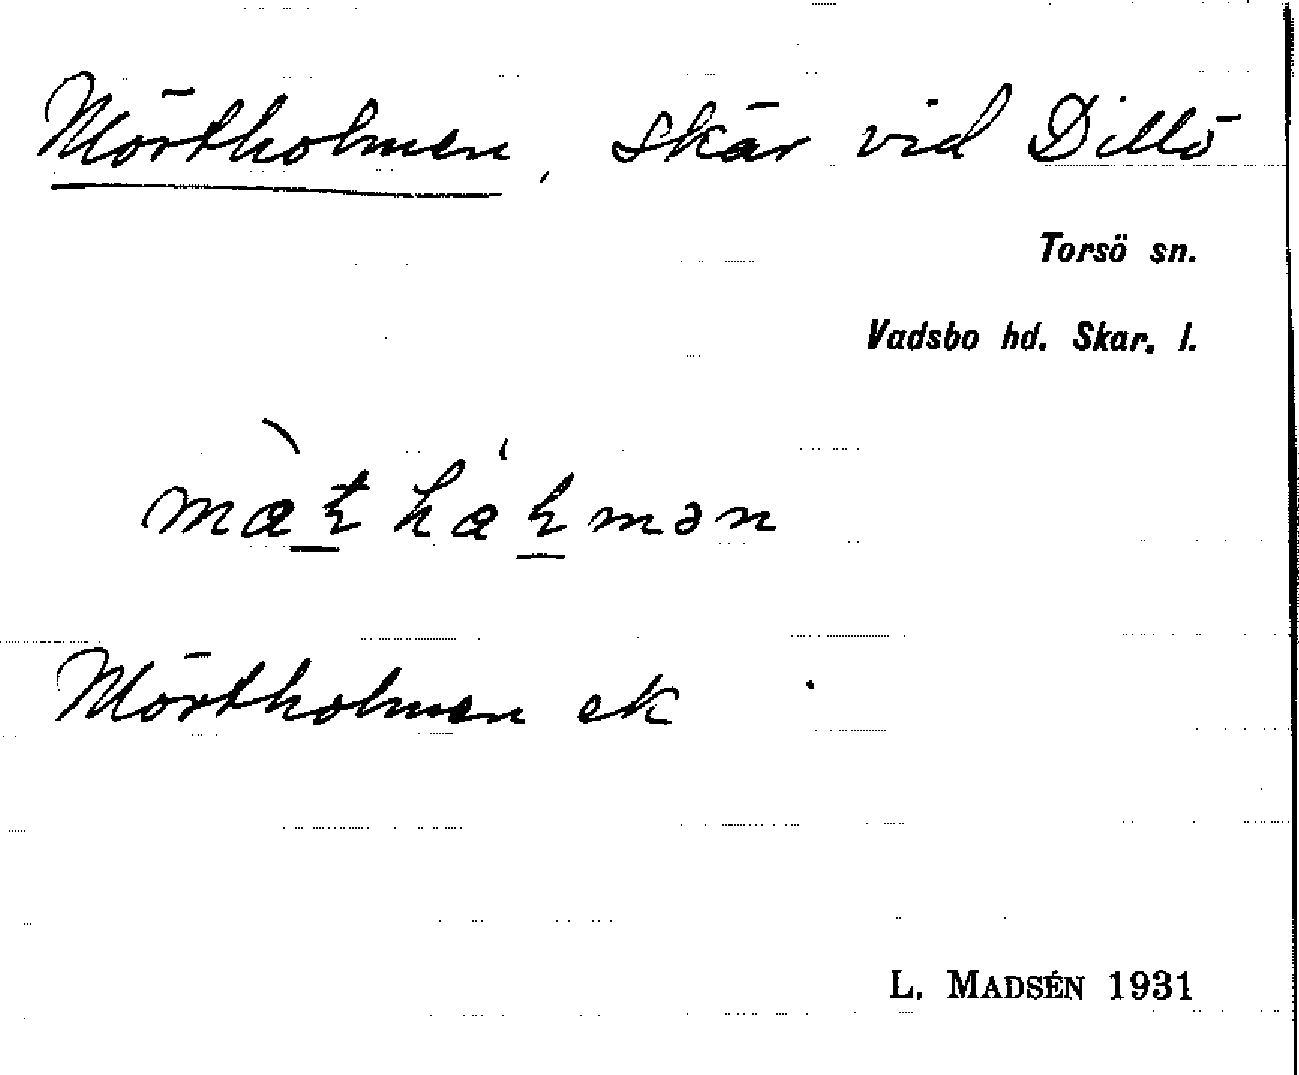 Mörtholmen, skär vid Dillö
Torsö sn.
Vadsbo hd. Skar. l.
Mörtholmen ek
L. MADSÉN 1931